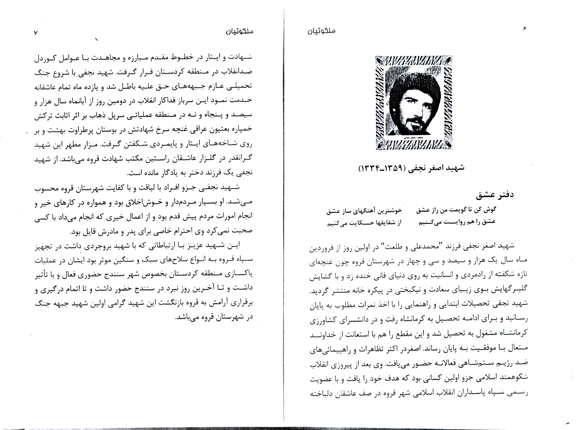 ۶
ملکوتیان
شهید اصغر نجفی (۱۳۵۹ـ۱۳۳۴)
دفتر عشق
گوش کن تا گویمت من راز عشق
خوشترین آهنگهای ساز عشق
عشق را هم روایت می‌کنیم
از شقایقها حکایت می‌کنیم
شهید اصغر نجفی فرزند "محمدعلی و طلعت" در اولین روز از فروردین
ماه سال یک هزار و سیصد و سی و چهار در شهرستان قروه چون غنچه‌ای
تازه شکفته از رادمردی و انسانیت به روی دنیای فانی خنده زد و با گشایش
گلبرگهایش بوی زیبای سعادت و نیکبختی در پیکره خانه منتشر گردید.
شهید نجفی تحصیلات ابتدایی و راهنمایی را با اخذ نمرات مطلوب به پایان
رسانید و برای ادامه تحصیل به کرمانشاه رفت و در دانشسرای کشاورزی
کرمانشاه مشغول به تحصیل شد و این مقطع را هم با استعانت از خداوند
متعال با موفقیت به پایان رساند. اصغر در اکثر تظاهرات و راهپیمائی‌های
ضد رژیم ستم‌شاهی فعالانه حضور می‌یافت. وی بعد از پیروزی انقلاب
شکوهمند اسلامی جزو اولین کسانی بود که هدف خود را یافت و با عضویت
رسمی سپاه پاسداران انقلاب اسلامی شهر قروه در صف عاشقان دلباخته
ملکوتیان
۷
شهادت و ایثار در خطوط مقدم مبارزه و مجاهدت با عوامل کوردل
ضدانقلاب در منطقه کردستان قرار گرفت. شهید نجفی با شروع جنگ
تحمیلی عازم جبهه‌های حق علیه باطل شد و یازده ماه تمام عاشقانه
خدمت نمود این سرباز فداکار انقلاب در دومین روز از آبانماه سال هزار و
سیصد و پنجاه و نه در منطقه عملیاتی سرپل ذهاب بر اثر اثابت ترکش
خمپاره بعثیون عراقی غنچه سرخ شهادتش در بوستان پرطراوت بهشت و بر
روی شاخه‌های ایثار و پایمردی شکفتن گرفت. مزار مطهر این شهید
گرانقدر در گلزار عاشقان راستین مکتب شهادت قروه می‌باشد. از شهید
نجفی یک فرزند دختر به یادگار مانده است.
شهید نجفی جزو افراد با لیاقت و با کفایت شهرستان قروه محسوب
می‌شد. او بسیار مردم‌دار و خوش‌اخلاق بود و همواره در کارهای خیر و
انجام امورات مردم پیش قدم بود و از اعمال خیری که انجام می‌داد با کسی
صحبت نمی‌کرد وی احترام خاصی برای پدر و مادرش قایل بود.
این شهید عزیز با ارتباطاتی که با شهید بروجردی داشت در تجهیز
سپاه قروه به انواع سلاح‌های سبک و سنگین موثر بود ایشان در عملیات
پاکسازی منطقه کردستان بخصوص شهر سنندج حضوری فعال و با تأثیر
داشت و تا آخرین روز نبرد در سنندج حضور داشت و تا اتمام درگیری و
برقراری آرامش به قروه بازنگشت این شهید گرامی اولین شهید جبهه جنگ
در شهرستان قروه می‌باشد.